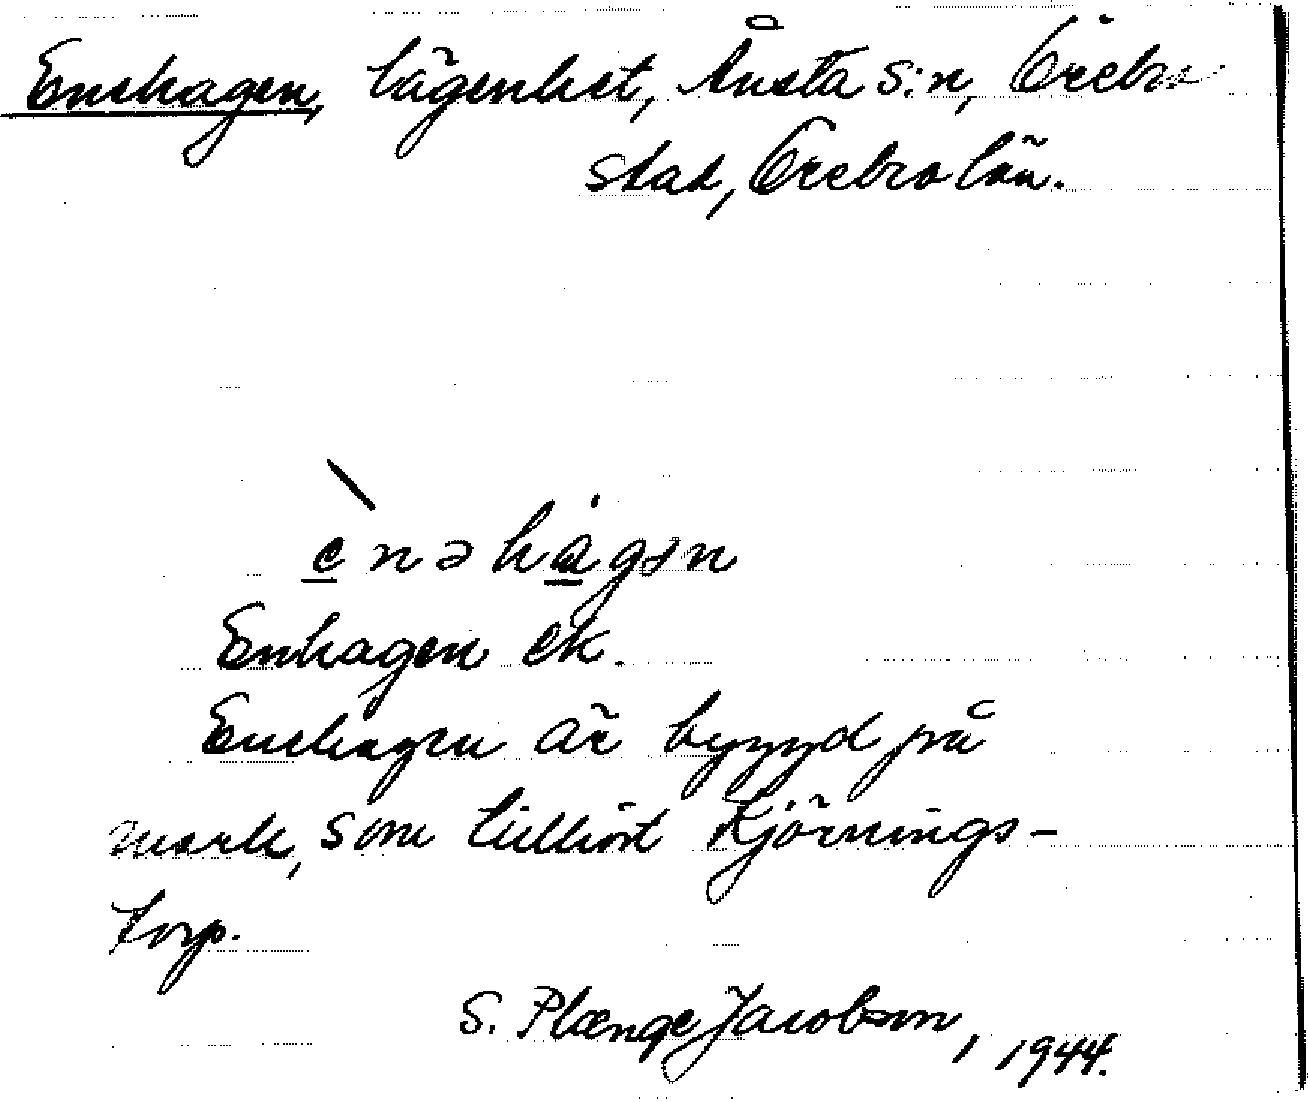 Enehagen, lägenhet, Ånsta s:n, Örebro
stad, Örebro län.
ènəhàgən
Enhagen ek.
Enehagen är byggd på
mark, som tillhört Kjörnings-
torp.
S. Plænge Jacobson, 1944.